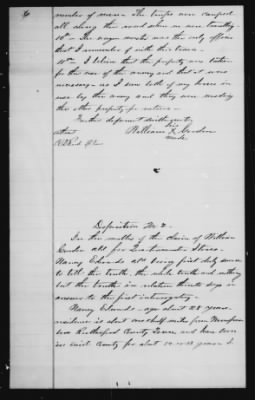 number of men. The troops were camped
all along the road down in our locality
10th The wagon master was the only officer
that I remember of with this train.
11th I believe that the property was taken
for the use of the army and that it was
necessary as I saw both of my horses in
use by the army and they were needing
the other property for rations.
Further deponent saith not
attest
William X
his
mark
Deposition No 2.
In the matter of the claim of William
for Quartermaster Stores.
Nancy Edwards being first duly sworn
to tell the truth, the whole truth and nothing
but the truth in relation thereto says in
answer to the first interrogatory.
Nancy Edwards - age about 28 years.
residence is about one half miles from
Rutherford County Tenn. and have been
in said County for about